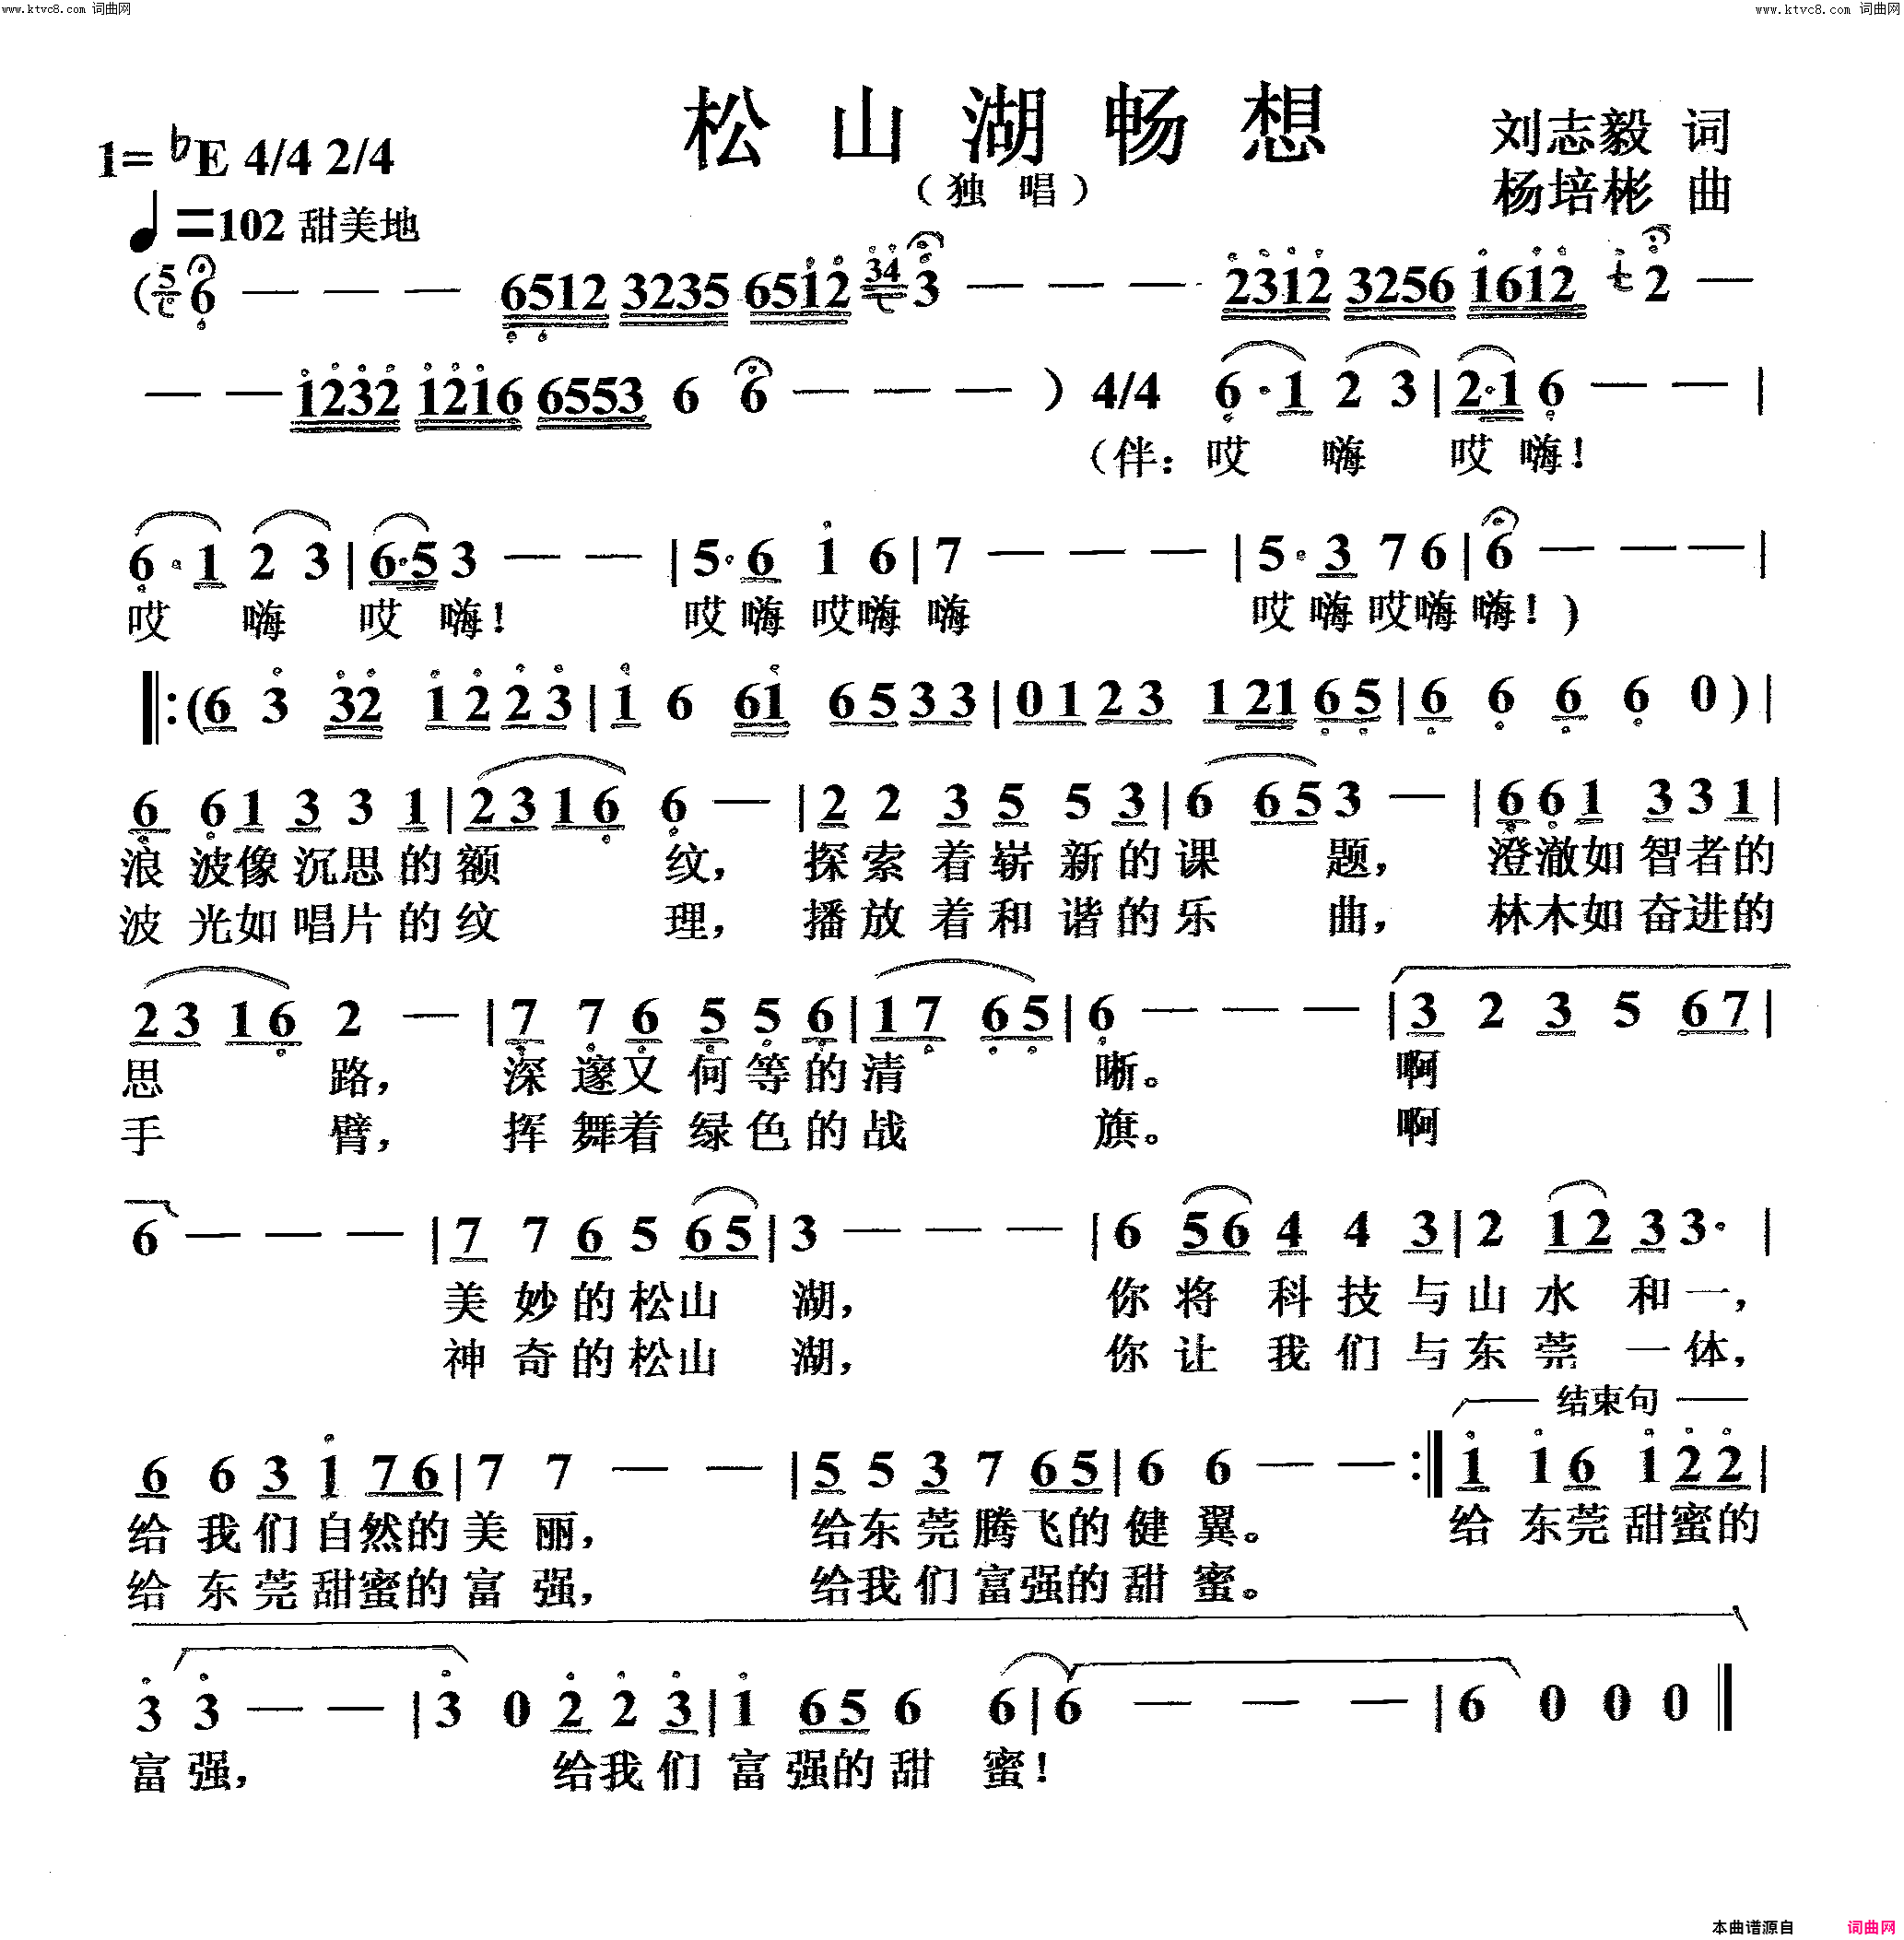 www.ktvc8.com 词曲网
www.ktvc8.com 词曲网
松山湖畅想
(独唱)
刘志毅 词
杨培彬 曲
1=♭E 4/4 2/4
♩=102 甜美地
(5 6 — — — 6512 3235 6512 34 3 — — — 2312 3256 1612 1 2 —
— — 1232 1216 6553 6 6 — — — ) 4/4 6·1 2 3 | 2·1 6 — — |
(伴: 哎 嗨 哎 嗨!
6·1 2 3 | 6·5 3 — — | 5·6 1 6 | 7 — — — | 5·3 7 6 | 6 — — — |
哎 嗨 哎 嗨! 哎嗨 哎嗨 嗨 哎嗨哎嗨嗨!)
‖:(6 3 32 12 23 | 1 6 61 65 33 | 01 23 121 65 | 6 6 6 6 0) |
6 6 1 3 3 1 | 23 16 6 — | 2 2 3 5 5 3 | 6 65 3 — | 6 6 1 3 3 1 |
浪 波像 沉思 的 额 纹, 探索 着崭 新的课 题, 澄澈如 智者的
波 光如 唱片 的 纹 理, 播放 着和 谐的乐 曲, 林木如 奋进的
23 16 2 — | 7 7 6 5 5 6 | 17 65 | 6 — — — | 3 2 3 5 67 |
思 路, 深 邃又 何等的清 晰。 啊
手 臂, 挥 舞着 绿色的战 旗。 啊
6 — — — | 7 7 6 5 65 | 3 — — — | 6 56 4 4 3 | 2 12 3 3· |
美 妙的松山 湖, 你 将 科 技与山 水 和一,
神 奇的松山 湖, 你 让 我 们与东 莞 一体,
结束句
6 6 3 1 76 | 7 7 — — | 5 5 3 7 65 | 6 6 — — :‖ 1 1 6 1 22 |
给 我们 自然的美 丽, 给东莞腾飞的健 翼。 给 东莞甜蜜的
给 东莞甜蜜的富 强, 给我们富强的甜 蜜。
3 3 — — | 3 0 2 2 3 | 1 65 6 6 | 6 — — — | 6 0 0 0 ‖
富强, 给我们 富 强的甜 蜜!
本曲谱源自 词曲网